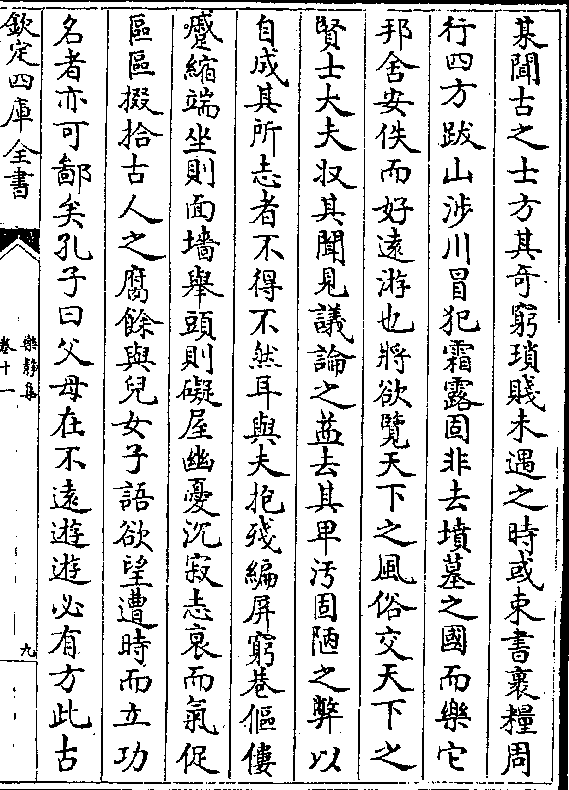 某聞古之士方其竒窮瑣賤未遇之時或束書裹糧周
行四方跋山涉川冒犯霜露固非去墳墓之國而樂它
邦舍安佚而好逺游也將欲覽天下之風俗交天下之
賢士大夫収其聞見議論之益去其卑汚固陋之弊以
自成其所志者不得不然耳與夫抱殘編屏窮巷傴僂
蹙縮端坐則面墻舉頭則礙屋幽憂沉寂志衰而氣促
區區掇拾古人之腐餘與兒女子語欲望遭時而立功
名者亦可鄙矣孔子曰父母在不逺遊遊必有方此古
欽定四庫全書
樂静集
卷十一
九